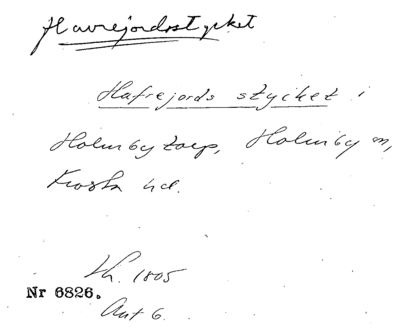 Havrejordsstycket
Hafrejords stycket i
Holmbytorp, Holmby sn,
Frosta hd.
Lh. 1805
Nr 6826.
Akt 6.